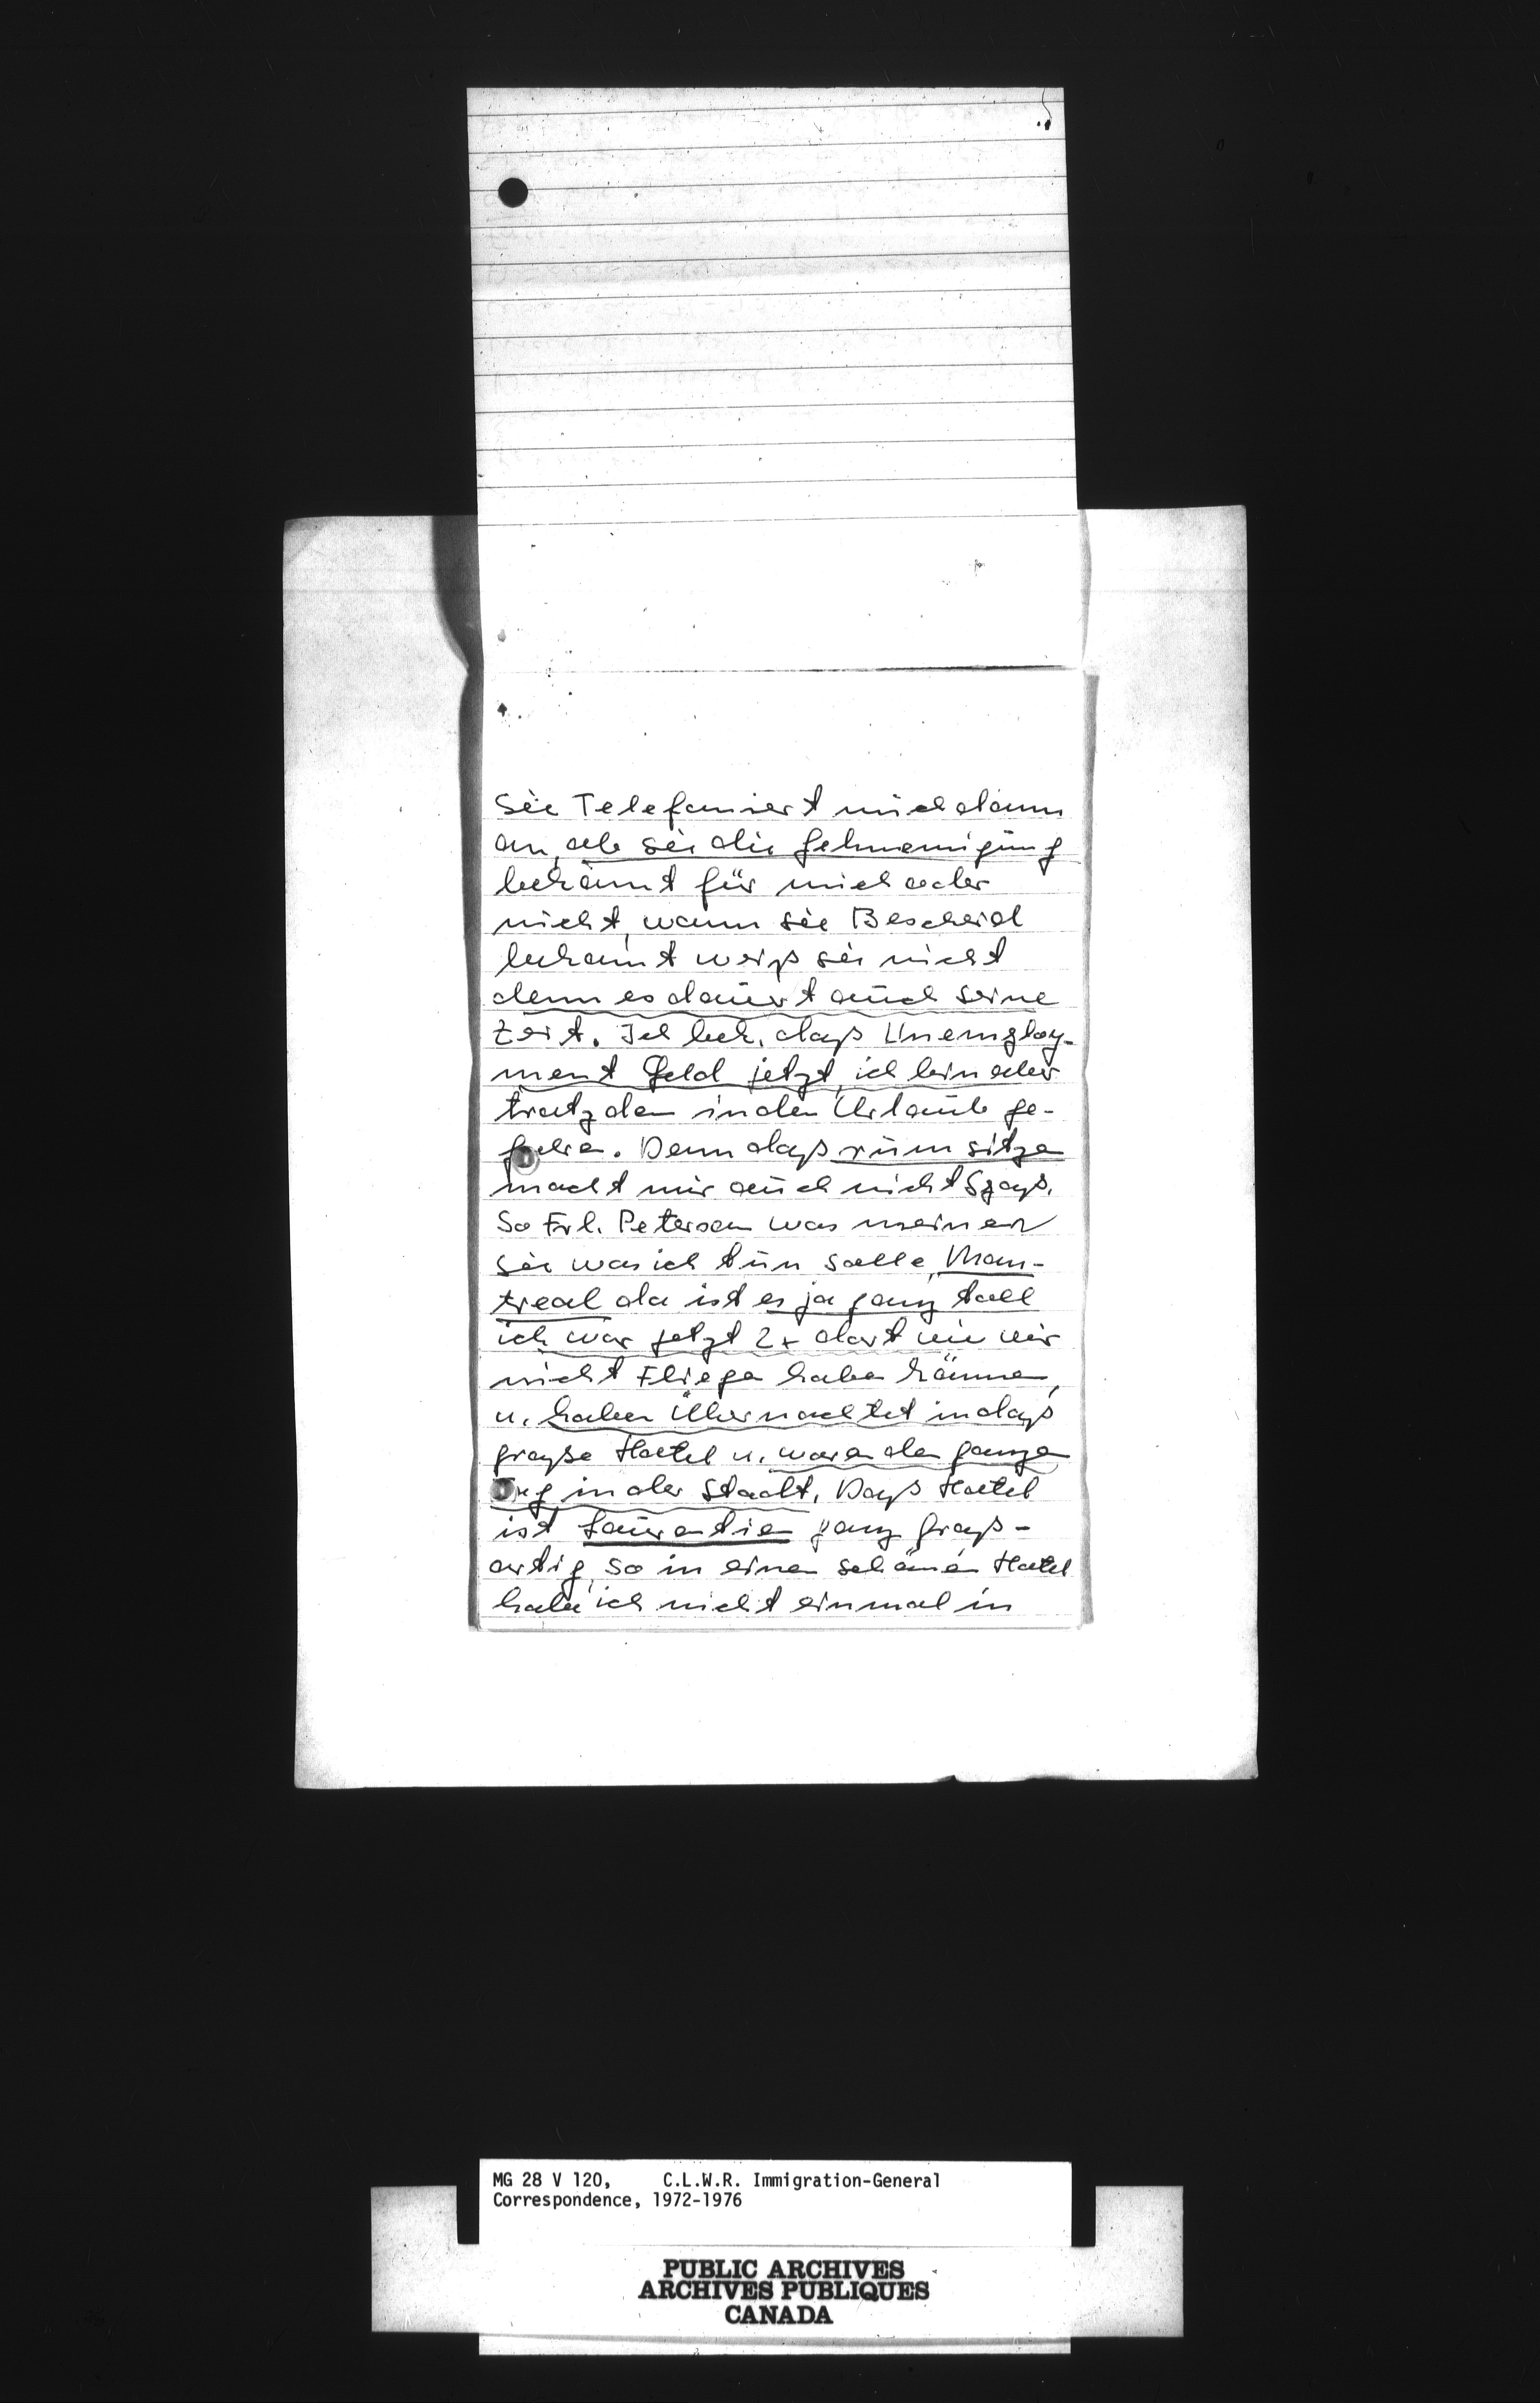 Sie Telefoniert mich dann
an, ob sie die Gehnemigung
bekomt für mich oder
nicht, wann sie Bescheid
bekomt weiß sie nicht
denn es dauert auch seine
Zeit. Ich bek. daß Unemploy-
ment Geld jetzt, ich bin aber
trotzden in den Urlaub ge-
Denn daß rum sitze
macht mir auch nicht Spaß.
So Frl. Petersen was meinen
sie was ich tun solle, Mon-
treal da ist es ja ganz toll
ich war jetzt 2x dort wie wir
nicht Fliege habe könne,
u. haben Übernachtet in daß
große Hotel u. ware den ganze
Tag in der Stadt. Daß Hotel
ist Laurentien ganz groß-
artig, so in einen schönen Hotel
habe ich nicht einmal in
MG 28 V 120, C.L.W.R. Immigration-General
Correspondence, 1972-1976
PUBLIC ARCHIVES
ARCHIVES PUBLIQUES
CANADA